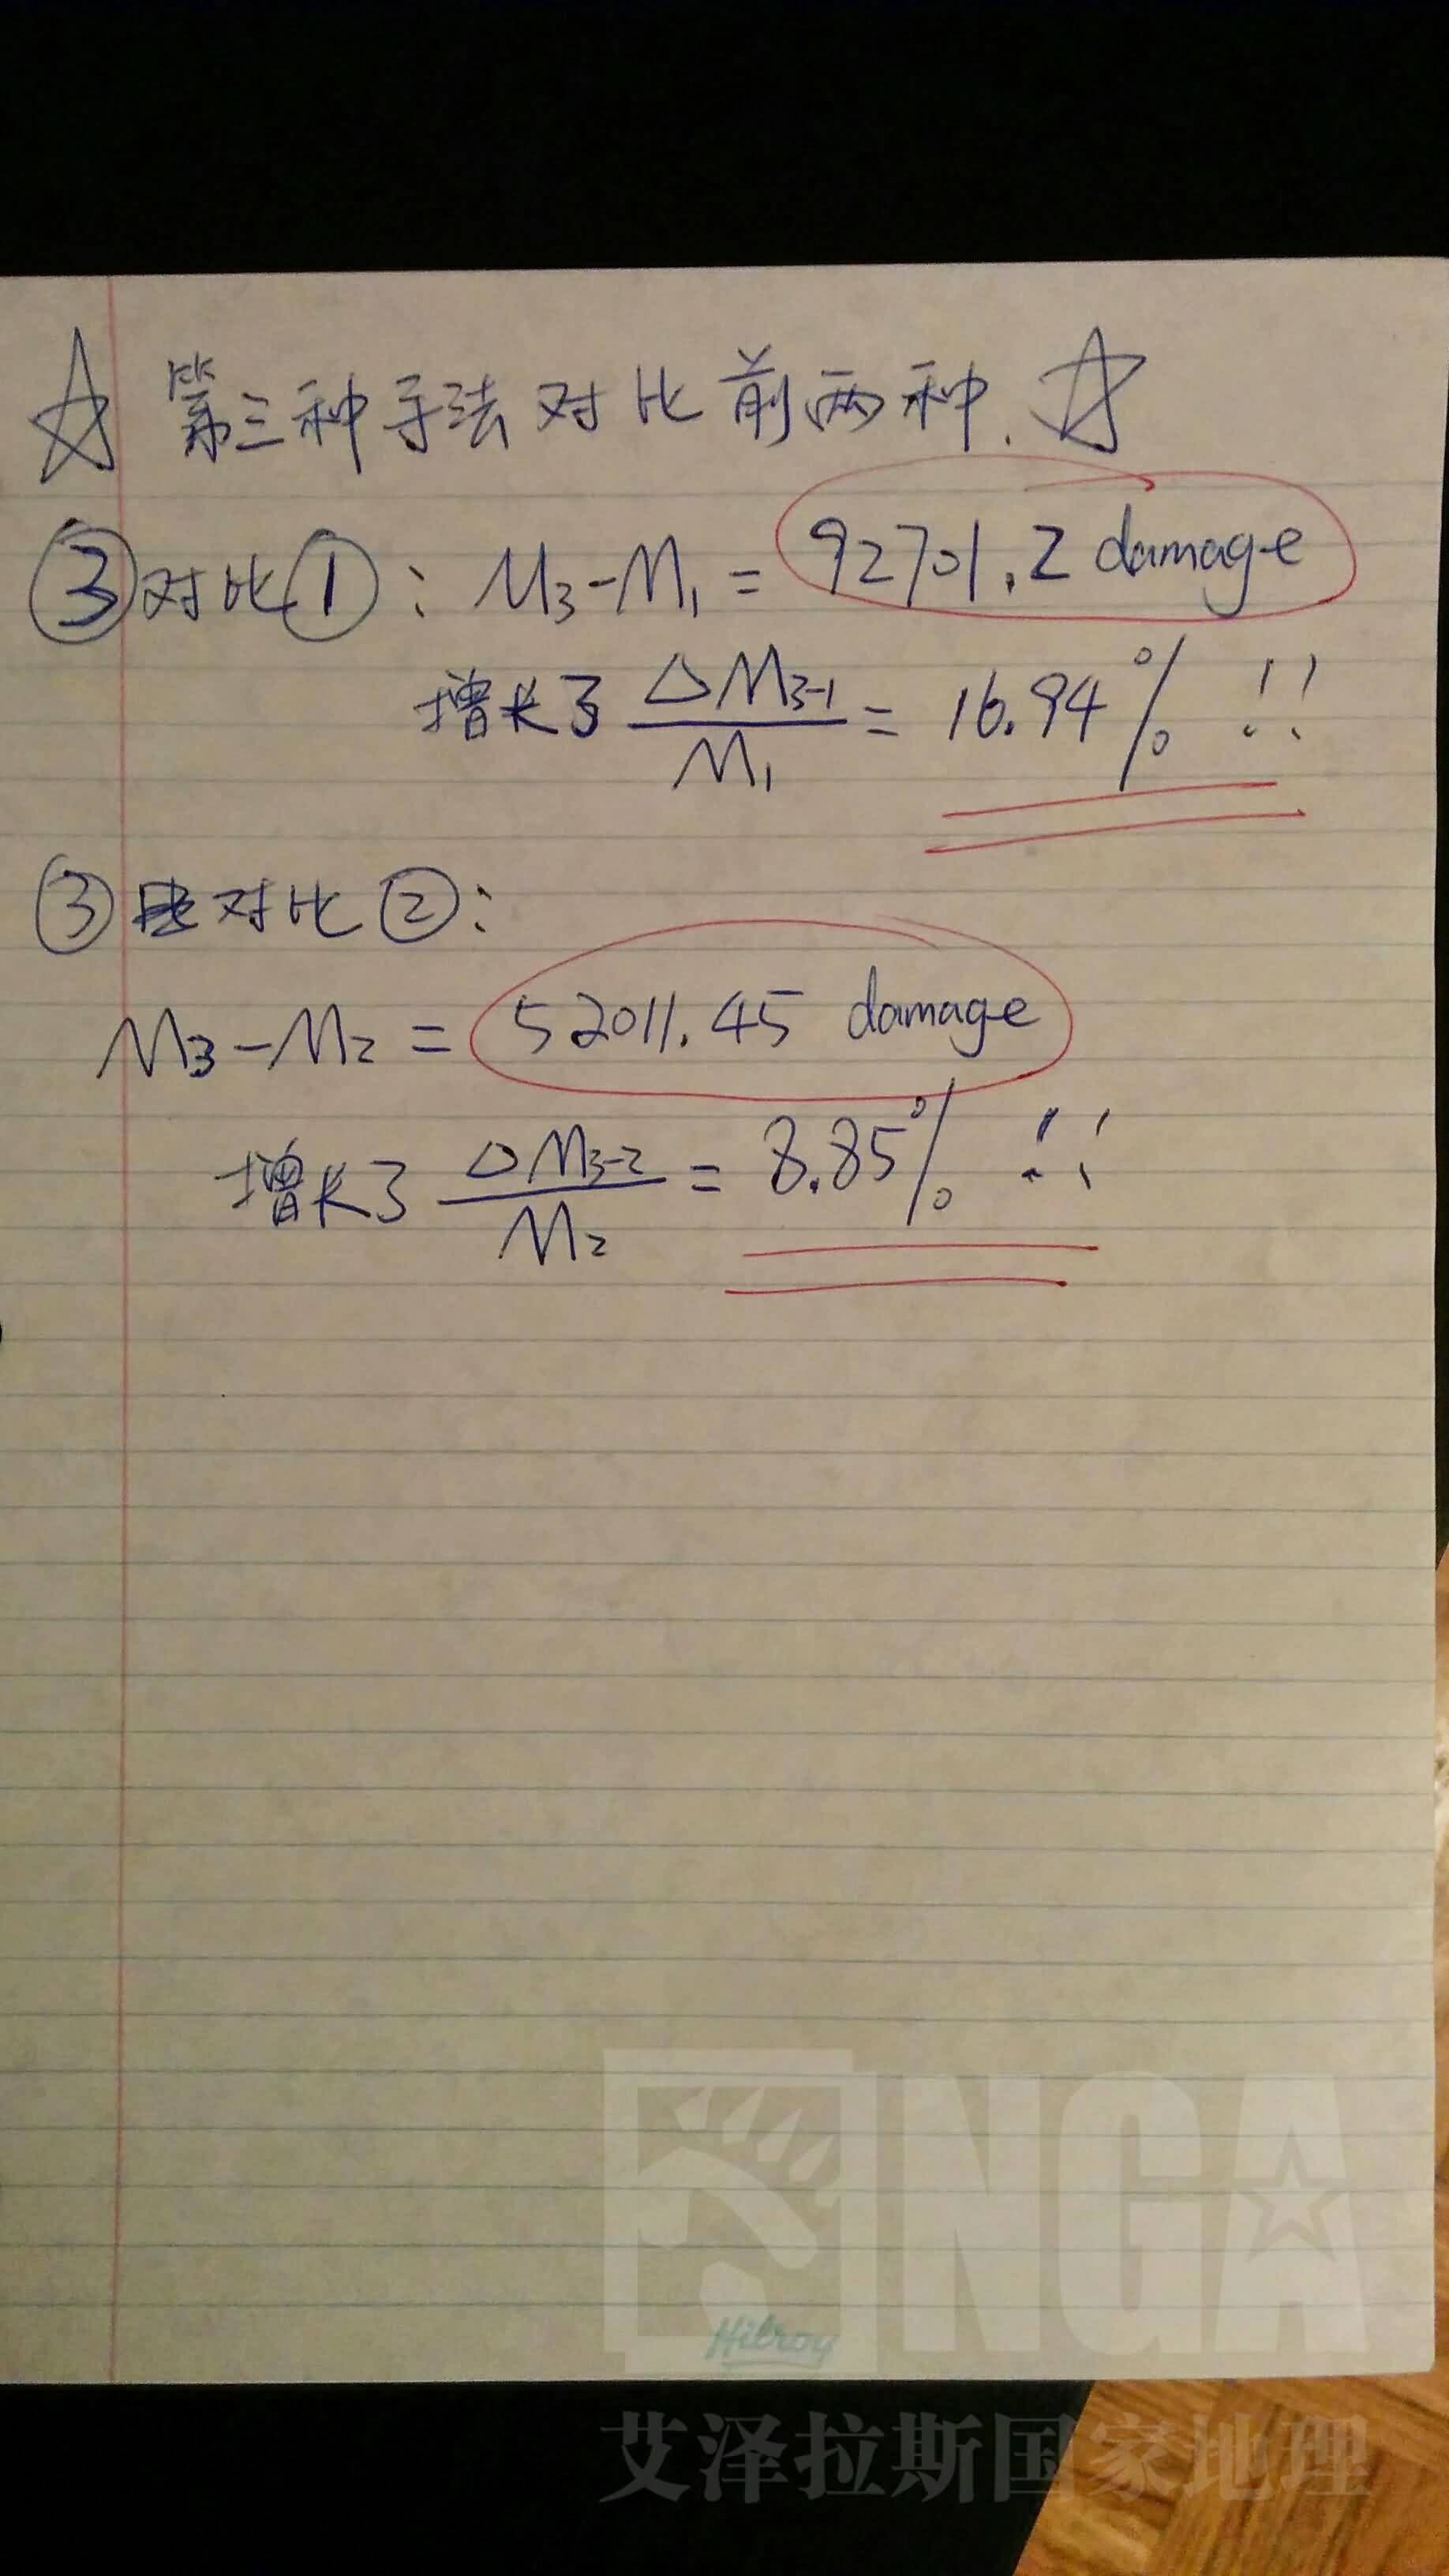 ☆ 第三种手法对比前两种. ☆
③对比①: M₃-M₁ = 92701.2 damage
增长了 ΔM₃₋₁/M₁ = 16.94% !!
③对比②:
M₃-M₂ = 52011.45 damage
增长了 ΔM₃₋₂/M₂ = 8.85% !!
NGA
Hilroy
艾泽拉斯国家地理